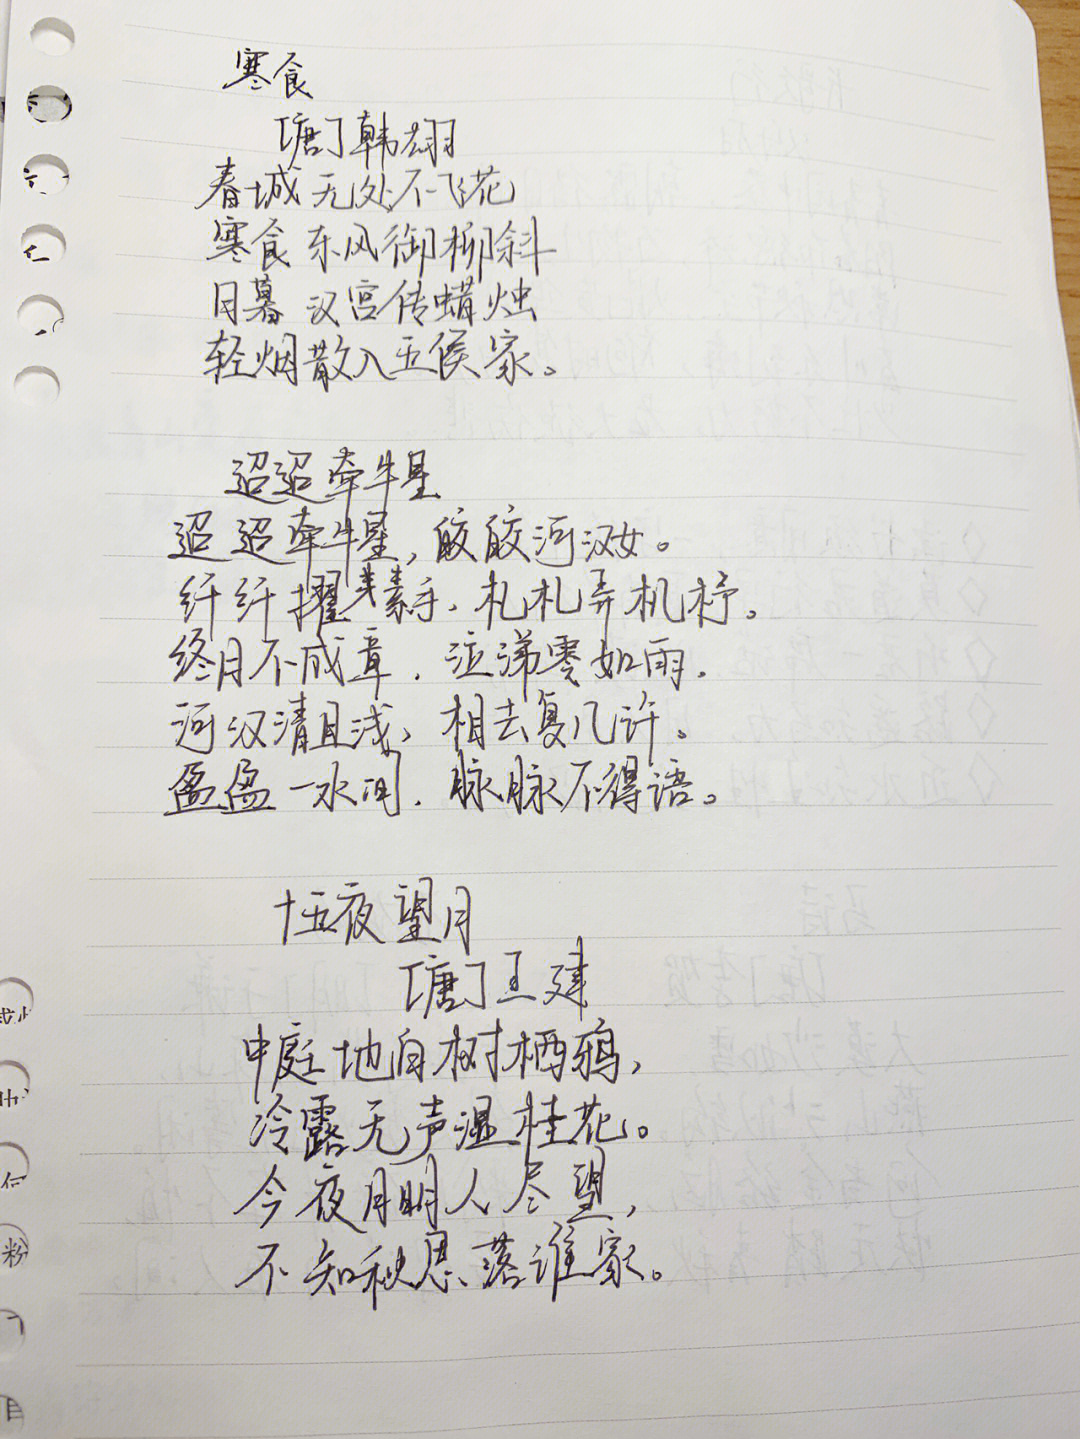 寒食
[唐]韩翃
春城无处不飞花
寒食东风御柳斜
日暮汉宫传蜡烛
轻烟散入五侯家。
迢迢牵牛星
迢迢牵牛星,皎皎河汉女。
纤纤擢素手,札札弄机杼。
终日不成章,泣涕零如雨,
河汉清且浅,相去复几许。
盈盈一水间,脉脉不得语。
十五夜望月
[唐]王建
中庭地白树栖鸦,
冷露无声湿桂花。
今夜月明人尽望,
不知秋思落谁家。